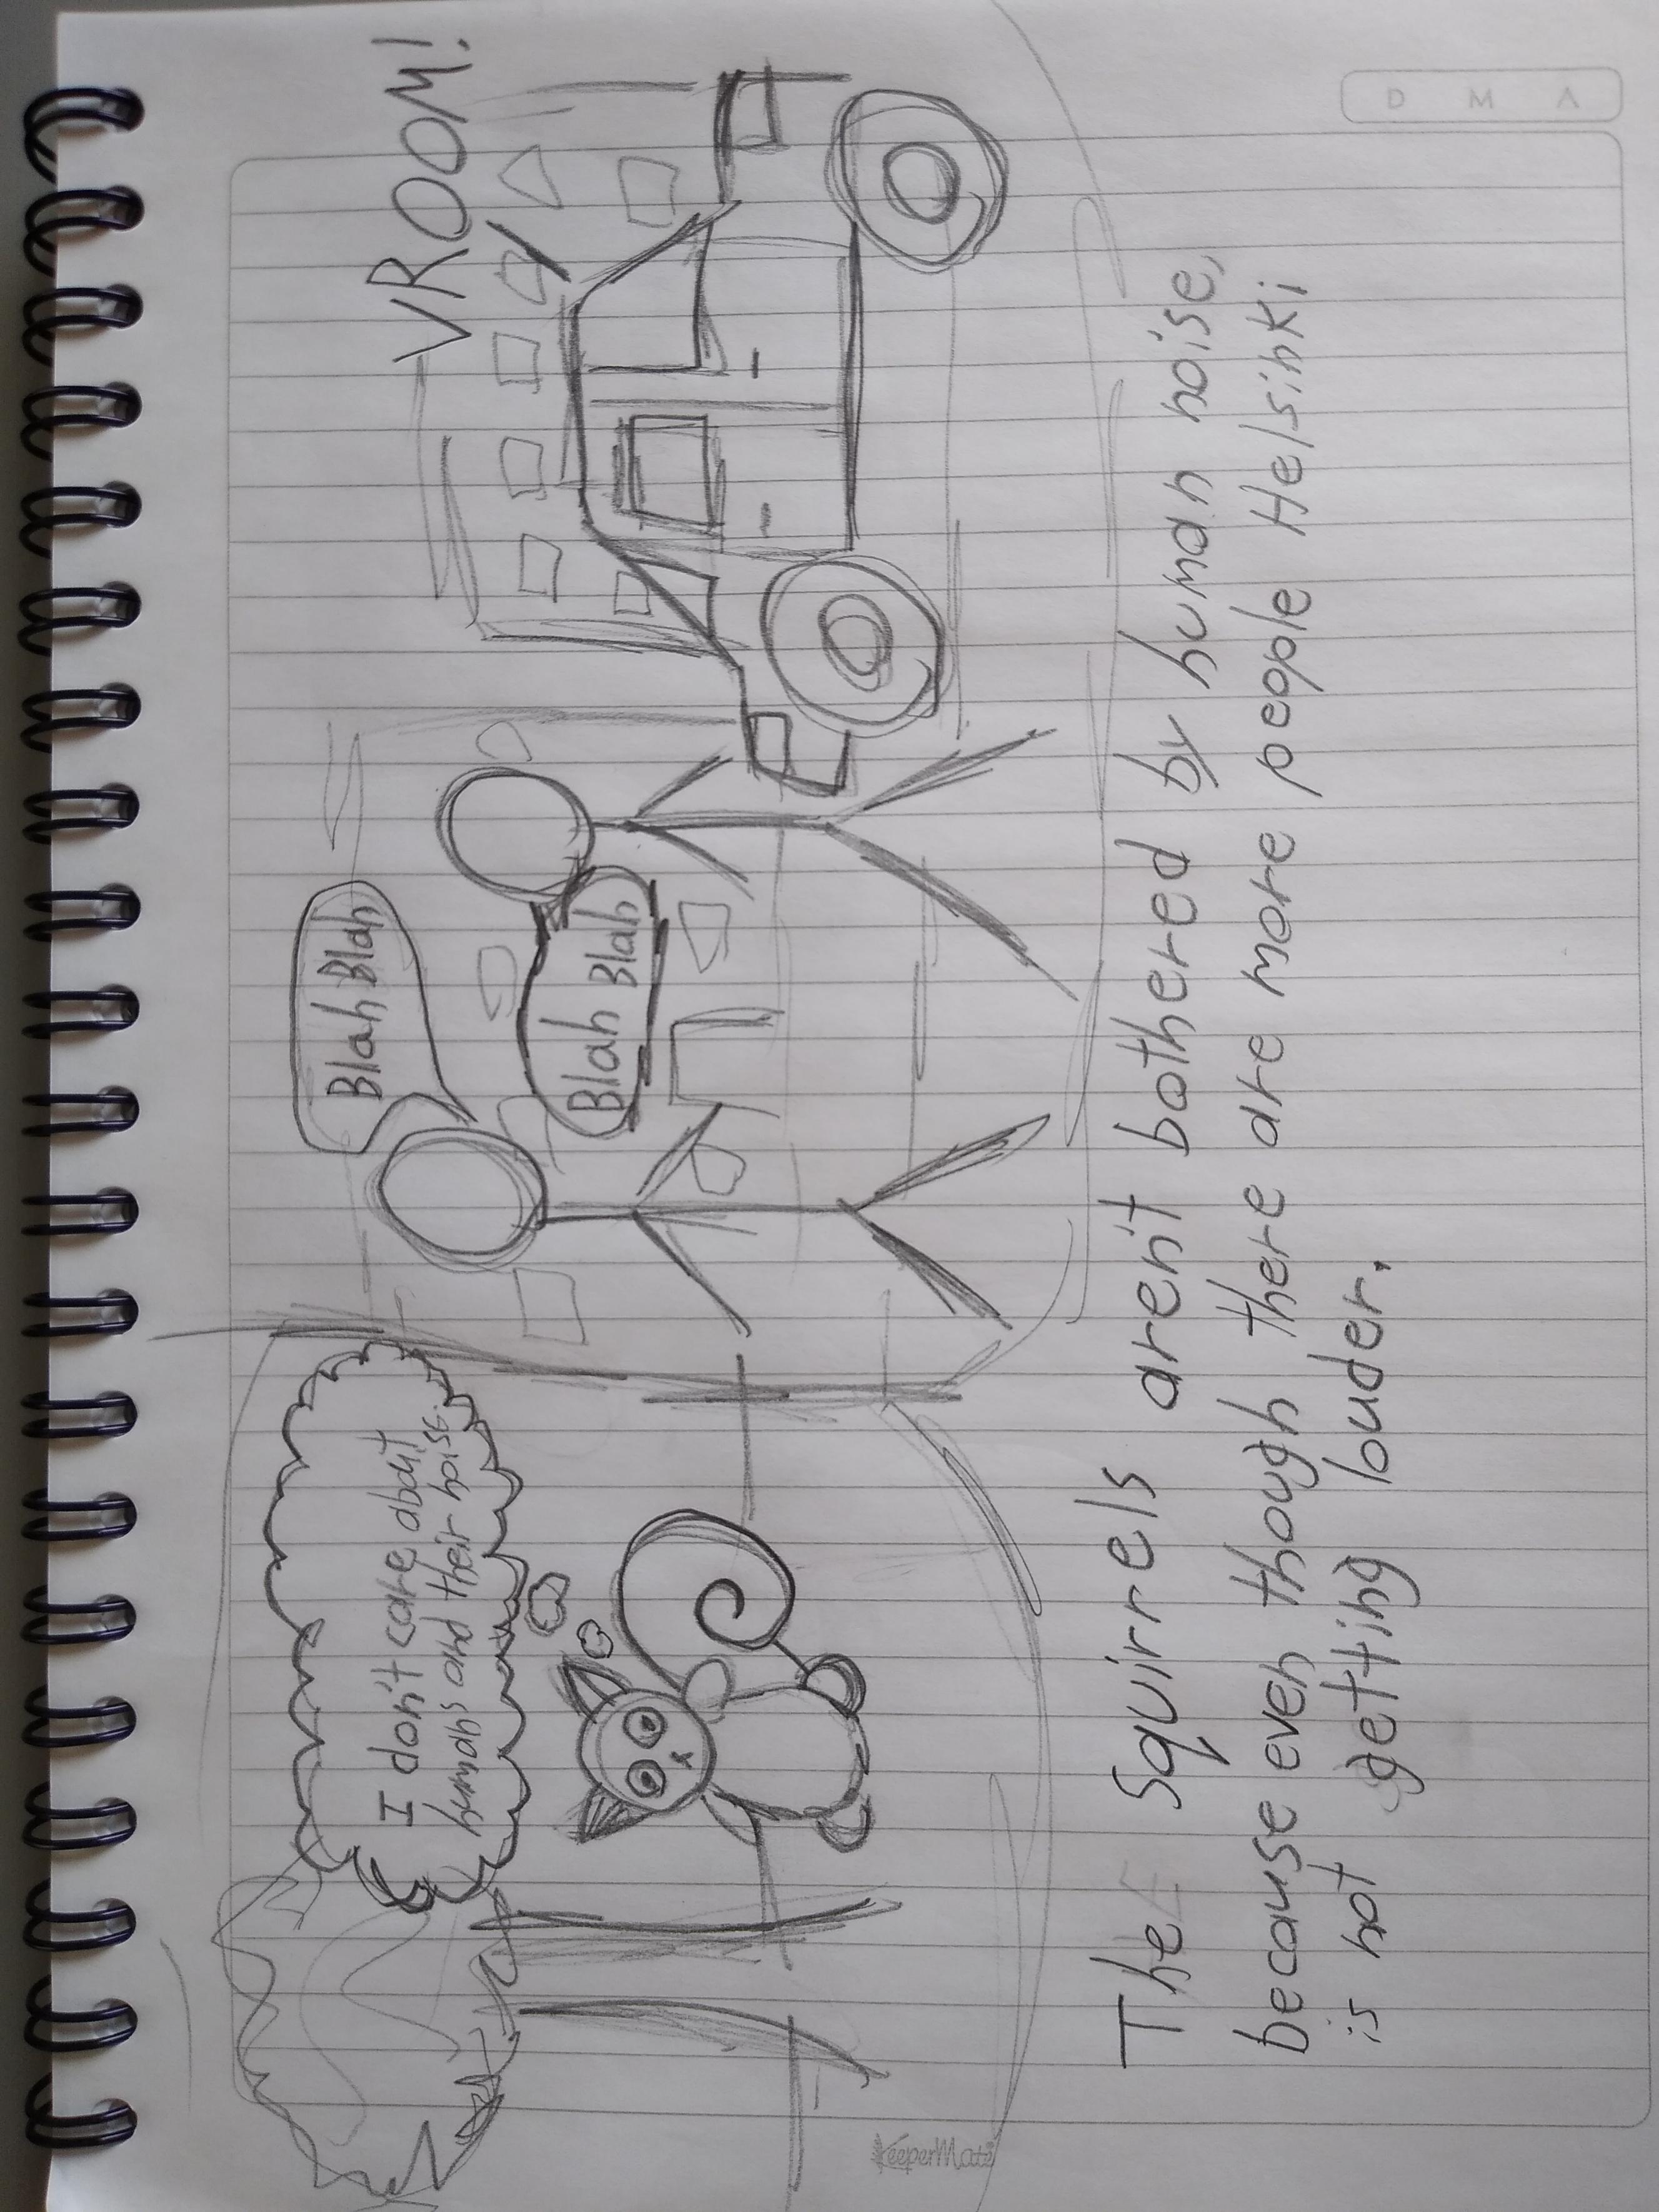 I don't care about
humans and their noise.
Blah Blah
Blah Blah
VROOM!
KeeperMatii
The Squirrels aren't bothered by human noise,
because even though there are more people Helsinki
is not getting louder.
D M A